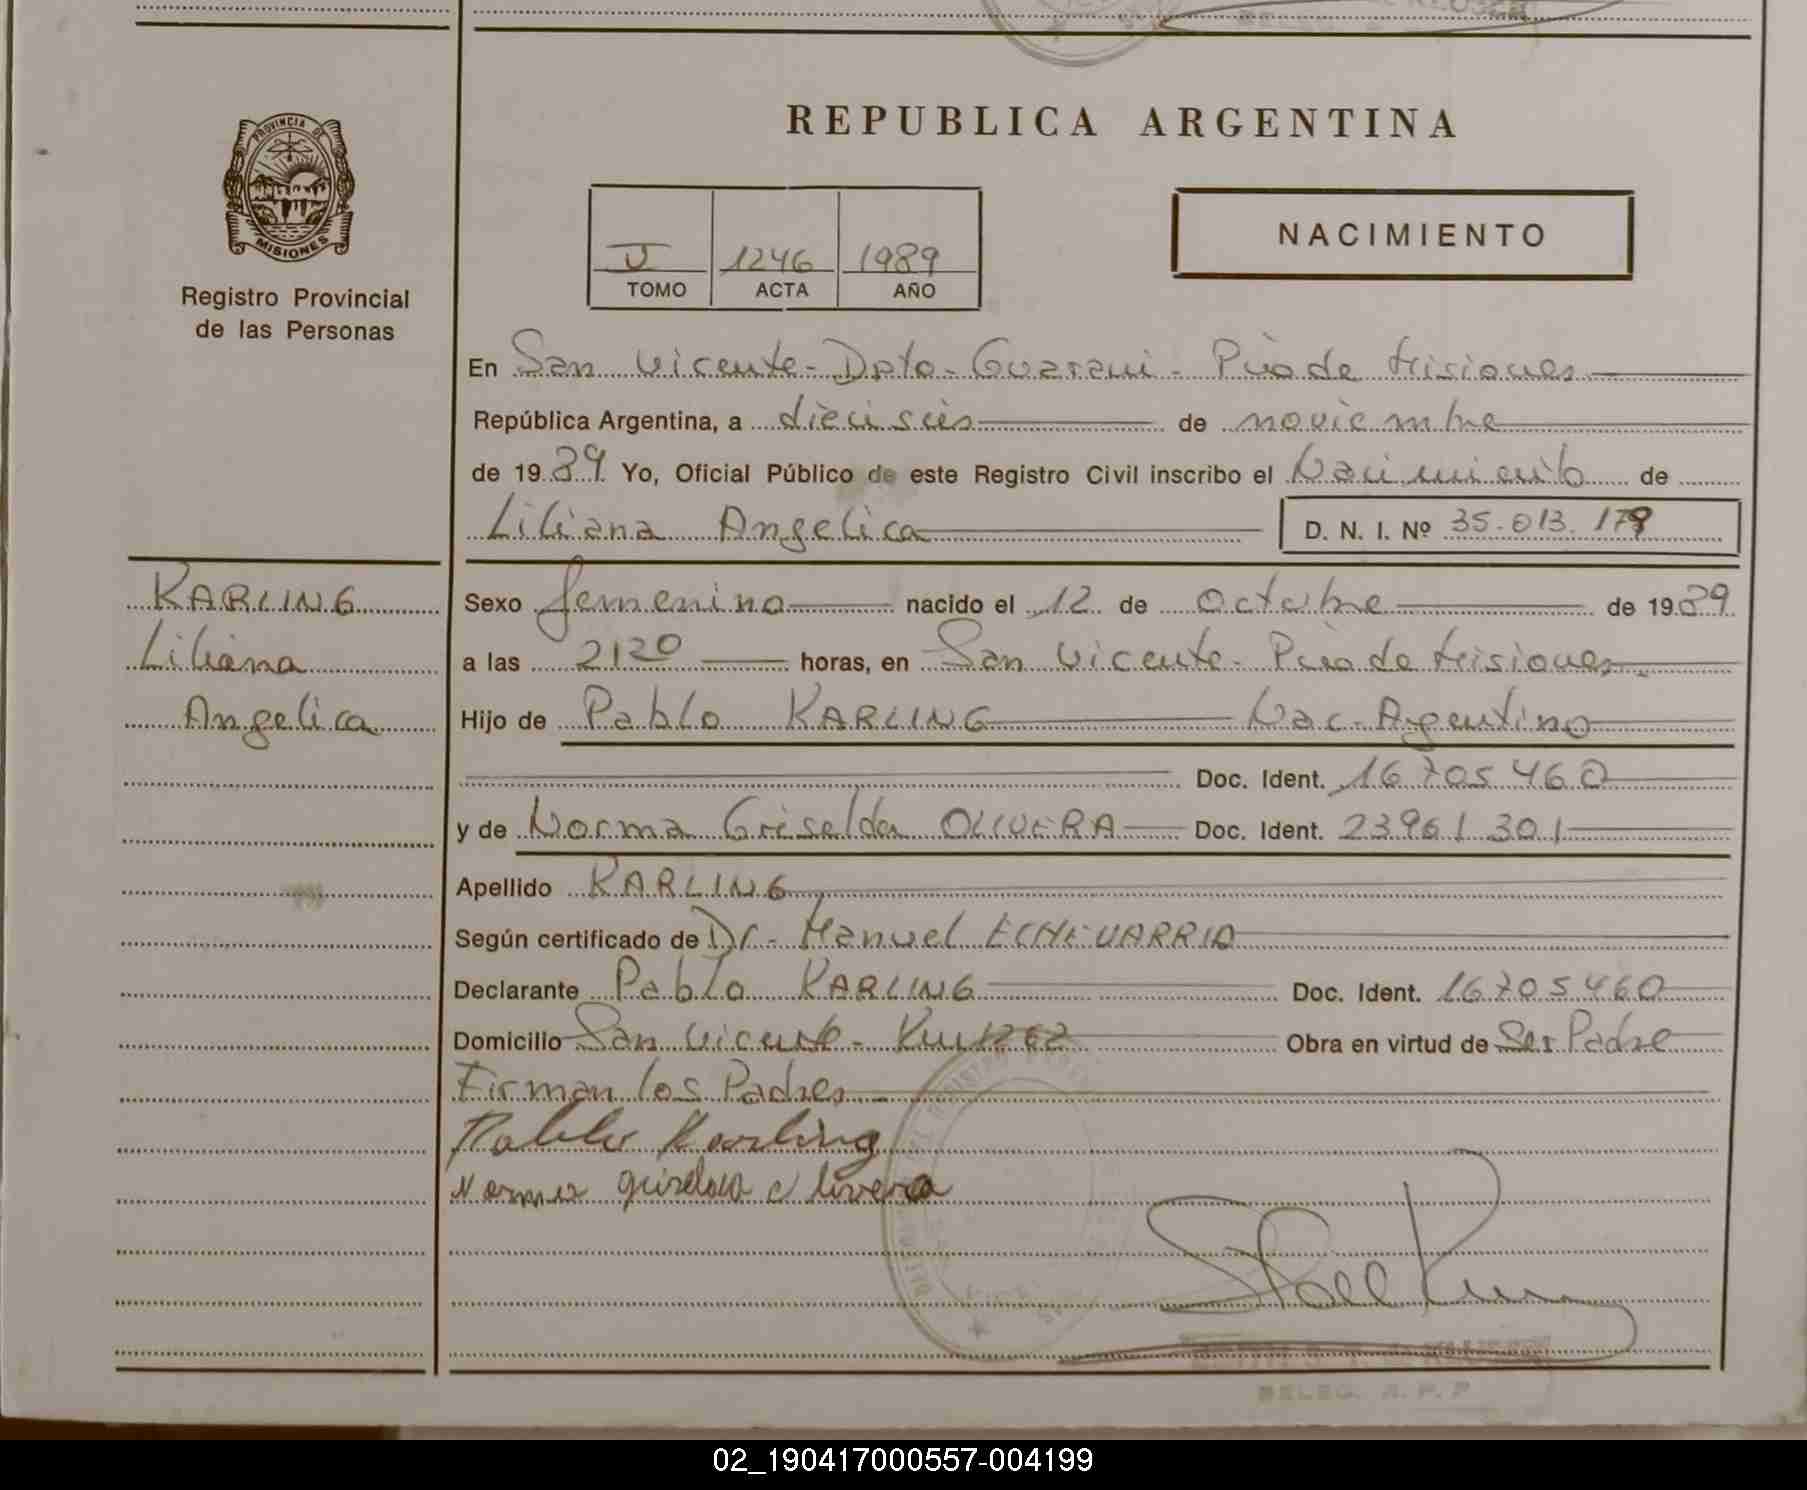 REPUBLICA ARGENTINA
PROVINCIA DE
MISIONES
Registro Provincial
de las Personas
NACIMIENTO
1246 1989
TOMO ACTA AÑO
En San Vicente - Dpto - Guarani - Pcia de Misiones
República Argentina, a dieciseis de noviembre
de 1989 Yo, Oficial Público de este Registro Civil inscribo el Nacimiento de
Liliana Angelica D. N. I. Nº 35.013.179
KARLING
Liliana
Angelica
Sexo femenino nacido el 12 de octubre de 1989
a las 2120 horas, en San Vicente - Pcia de Misiones
Hijo de Pablo KARLING Nac. Argentino
Doc. Ident. 16705460
y de Norma Griselda OLIVERA Doc. Ident. 23961301
Apellido KARLING
Según certificado de Dr. Manuel ECHEVARRIA
Declarante Pablo KARLING Doc. Ident. 16705460
Domicilio San Vicente - Obra en virtud de Ser Padre
Firman los Padres
Pablo Karling
Norma griselda olivera
DELEG. R. P. P
02_190417000557-004199